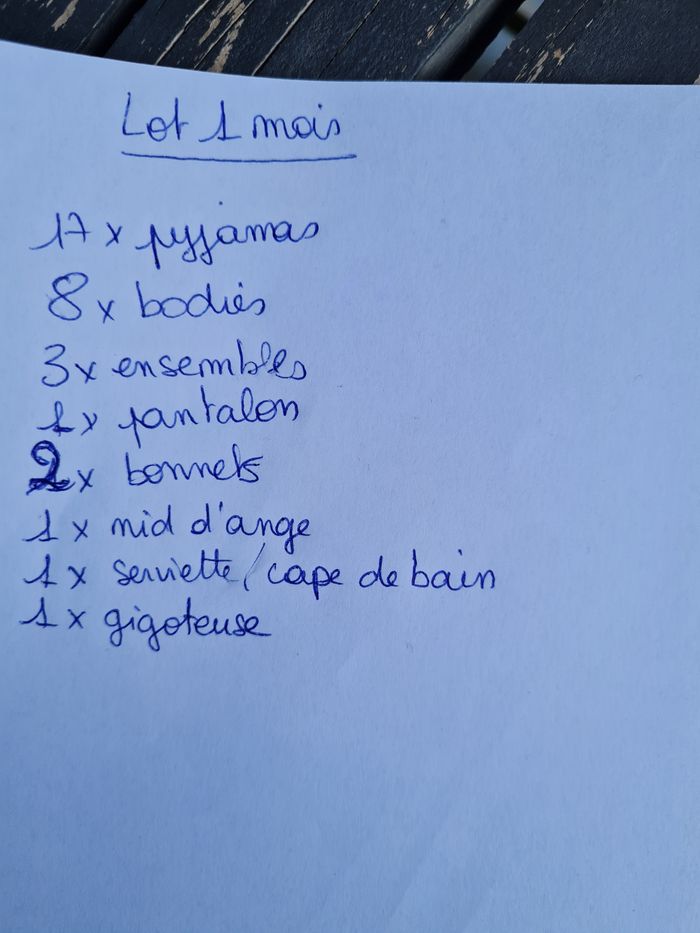 Lot 1 mois
17 x pyjamas
8 x bodies
3 x ensembles
1 x pantalon
2 x bonnets
1 x nid d'ange
1 x serviette/cape de bain
1 x gigoteuse